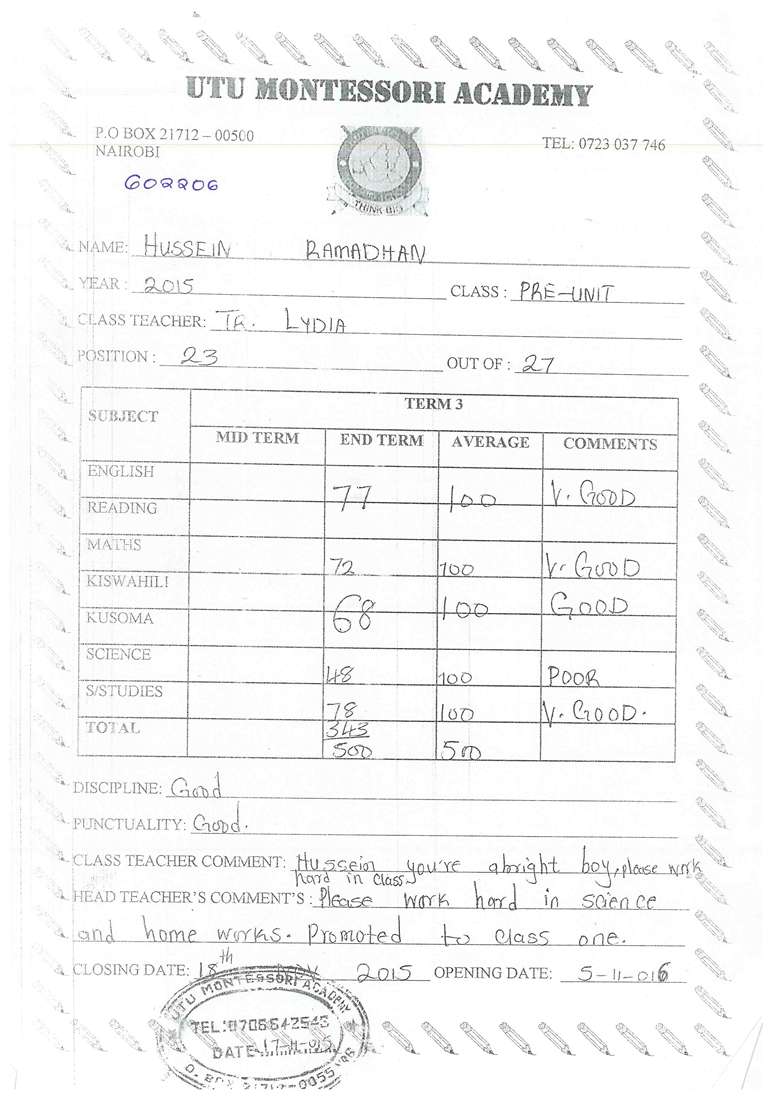 UTU MONTESSORI ACADEMY
P.O BOX 21712 – 00500
NAIROBI
TEL: 0723 037 746
602206
THINK BIG
NAME: HUSSEIN RAMADHAN
YEAR : 2015 CLASS : PRE-UNIT
CLASS TEACHER: TR. LYDIA
POSITION : 23 OUT OF : 27
SUBJECT TERM 3
MID TERM END TERM AVERAGE COMMENTS
ENGLISH 77 100 V. GOOD
READING
MATHS 72 100 V. GOOD
KISWAHILI 68 100 GOOD
KUSOMA
SCIENCE 48 100 POOR
S/STUDIES 78 100 V. GOOD.
TOTAL 343
500 500
DISCIPLINE: Good
PUNCTUALITY: Good.
CLASS TEACHER COMMENT: Hussein you're abright boy, please work
hard in class
HEAD TEACHER'S COMMENT'S : Please work hard in science
and home works. Promoted to class one.
CLOSING DATE: 18th NOV 2015 OPENING DATE: 5-11-016
UTU MONTESSORI ACADEMY
TEL:0706642543
DATE 17-11-015